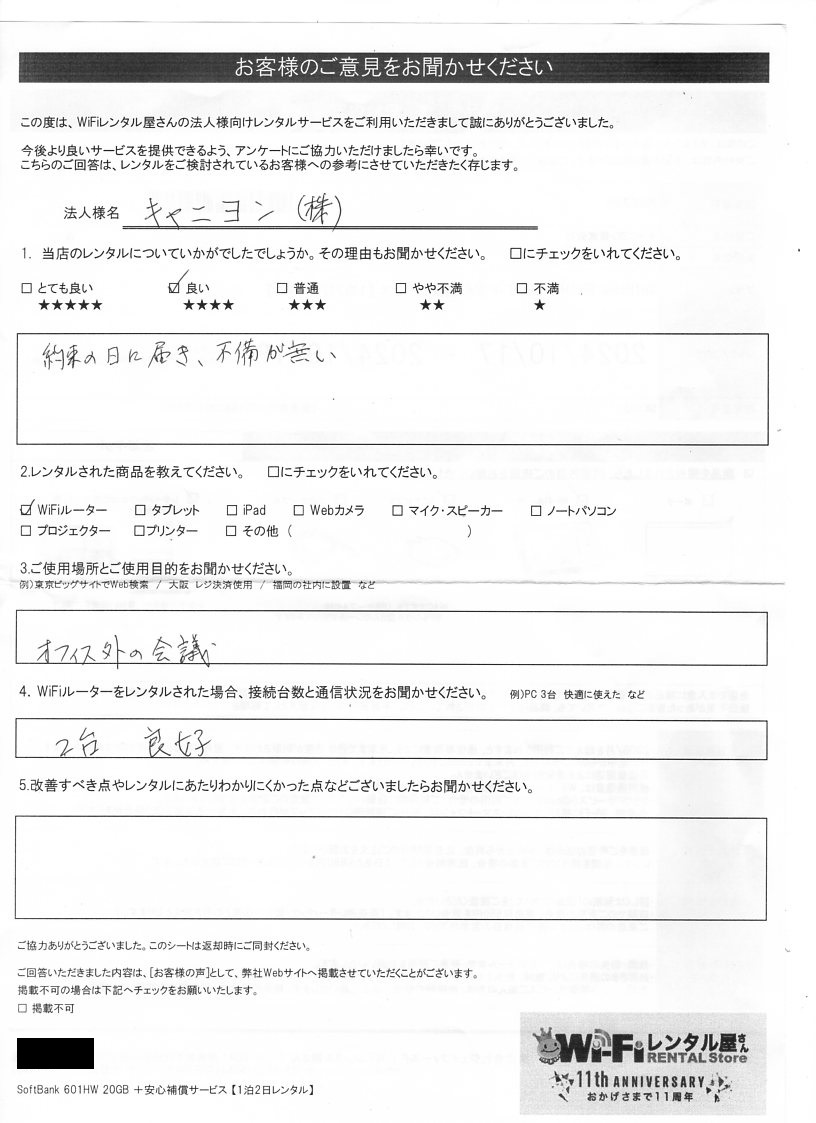 お客様のご意見をお聞かせください
この度は、WiFiレンタル屋さんの法人様向けレンタルサービスをご利用いただきまして誠にありがとうございました。
今後より良いサービスを提供できるよう、アンケートにご協力いただけましたら幸いです。
こちらのご回答は、レンタルをご検討されているお客様への参考にさせていただきたく存じます。
法人様名 キャニヨン(株)
1. 当店のレンタルについていかがでしたでしょうか。その理由もお聞かせください。 □にチェックをいれてください。
□ とても良い ☑ 良い □ 普通 □ やや不満 □ 不満
★★★★★ ★★★★ ★★★ ★★ ★
約束の日に届き、不備が無い
2.レンタルされた商品を教えてください。 □にチェックをいれてください。
☑ WiFiルーター □ タブレット □ iPad □ Webカメラ □ マイク・スピーカー □ ノートパソコン
□ プロジェクター □プリンター □ その他 ( )
3.ご使用場所とご使用目的をお聞かせください。
例)東京ビッグサイトでWeb検索 / 大阪 レジ決済使用 / 福岡の社内に設置 など
オフィス外の会議
4. WiFiルーターをレンタルされた場合、接続台数と通信状況をお聞かせください。 例)PC 3台 快適に使えた など
2台 良好
5.改善すべき点やレンタルにあたりわかりにくかった点などございましたらお聞かせください。
ご協力ありがとうございました。このシートは返却時にご同封ください。
ご回答いただきました内容は、[お客様の声]として、弊社Webサイトへ掲載させていただくことがございます。
掲載不可の場合は下記へチェックをお願いいたします。
□ 掲載不可
Wi-Fiレンタル屋さん
RENTAL Store
11th ANNIVERSARY
おかげさまで11周年
SoftBank 601HW 20GB +安心補償サービス【1泊2日レンタル】